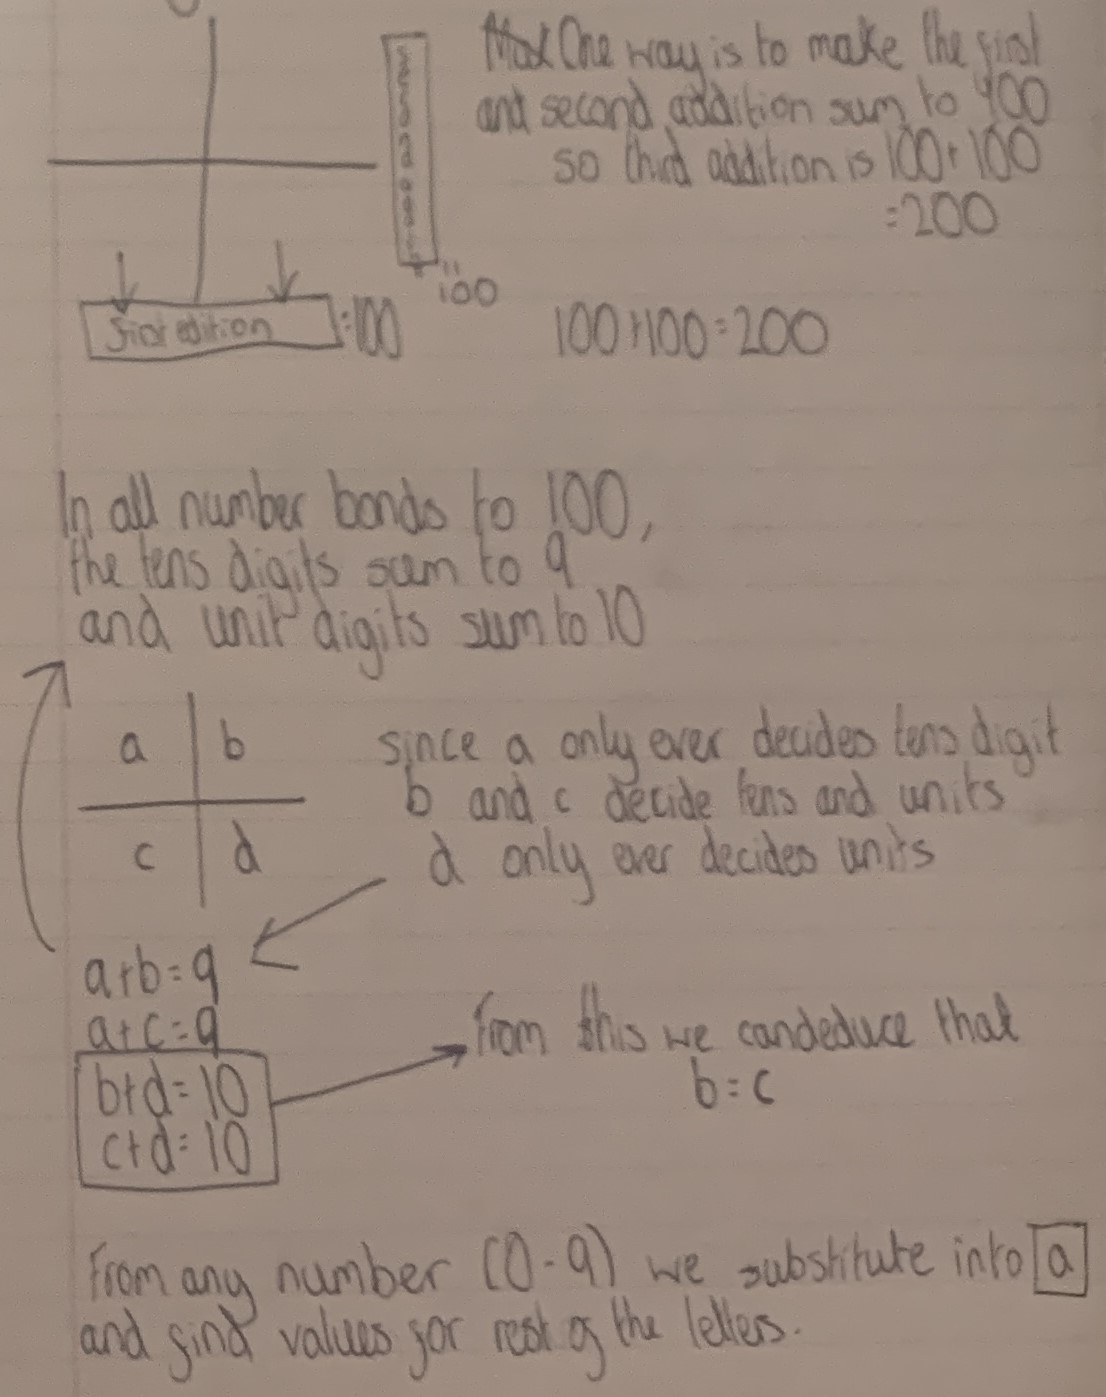 One way is to make the first
and second addition sum to 100
so third addition is 100+100
=200
=100
First edition =100
100+100=200
In all number bonds to 100,
the tens digits sum to 9
and unit digits sum to 10
a b since a only ever decides tens digit
b and c decide tens and units
c d d only ever decides units
a+b=9
a+c=9
From this we can deduce that
b+d=10
b=c
c+d=10
From any number (0-9) we substitute into a
and find values for rest of the letters.